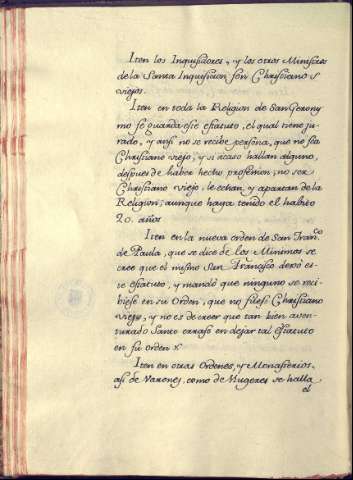 Iten los Inquisidores, y los otros Ministros
de la Santa Inquisicion son Christianos
viejos.
Iten en toda la Religion de San Gerony
mo se guarda este estatuto, el qual tiene ju-
rado, y ansi no se recibe persona, que no sea
Christiano viejo, y si acaso hallan alguno,
despues de haber hecho profesion, no ser
Christiano viejo, le echan, y apartan de la
Religion; aunque haya tenido el habito
20. años
Iten en la nueva orden de San Fran.co
de Paula, que se dice de los Minimos se
cree que el mismo San Francisco dexó es-
te estatuto, y mandó que ninguno se reci-
biese en su Orden, que no fuese Christiano
viejo, y no es de creer que tan bien aven-
turado Santo errase en dejar tal estatuto
en su orden
Iten en otras Ordenes, y Monasterios
asi de Varones, como de Mugeres se halla
el